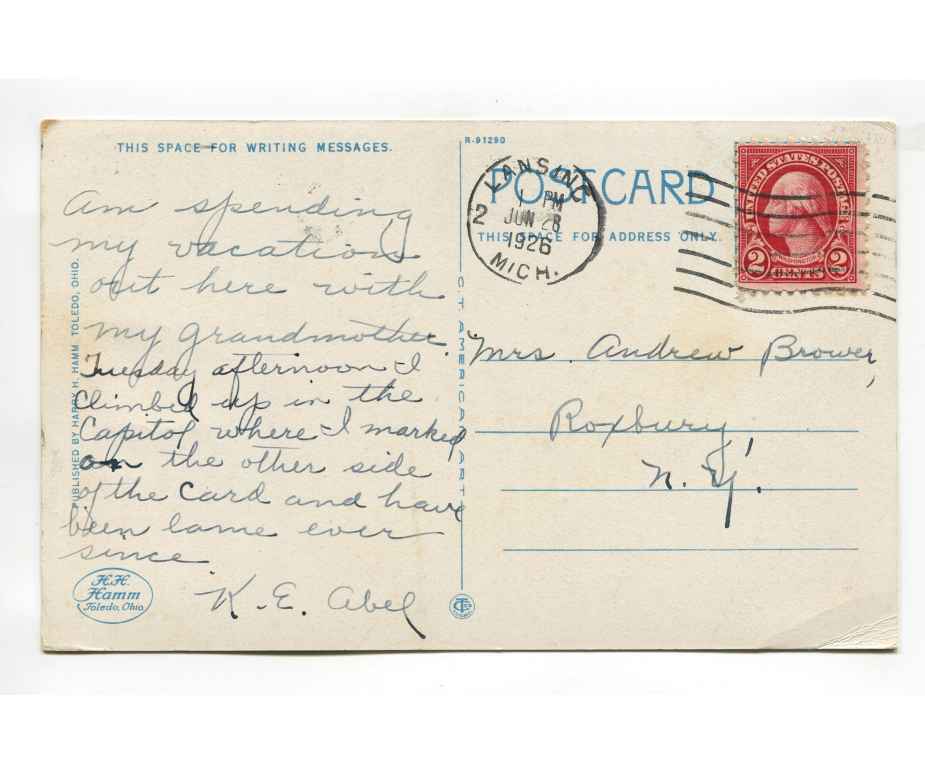 THIS SPACE FOR WRITING MESSAGES.
Am spending
my vacation
out here with
my grandmother.
Tuesday afternoon I
climbed up in the
Capitol where I marked
on the other side
of the card and have
been lame ever
since
K. E. Abel
PUBLISHED BY HARRY H. HAMM TOLEDO, OHIO.
H.H.
Hamm
Toledo, Ohio
C.T. AMERICAN ART
R-91290
POST CARD
THIS SPACE FOR ADDRESS ONLY.
LANSING
1 PM
2
JUN 28
1926
MICH.
UNITED STATES POSTAGE
WASHINGTON
2 CENTS 2
Mrs. Andrew Brower,
Roxbury
N. Y.